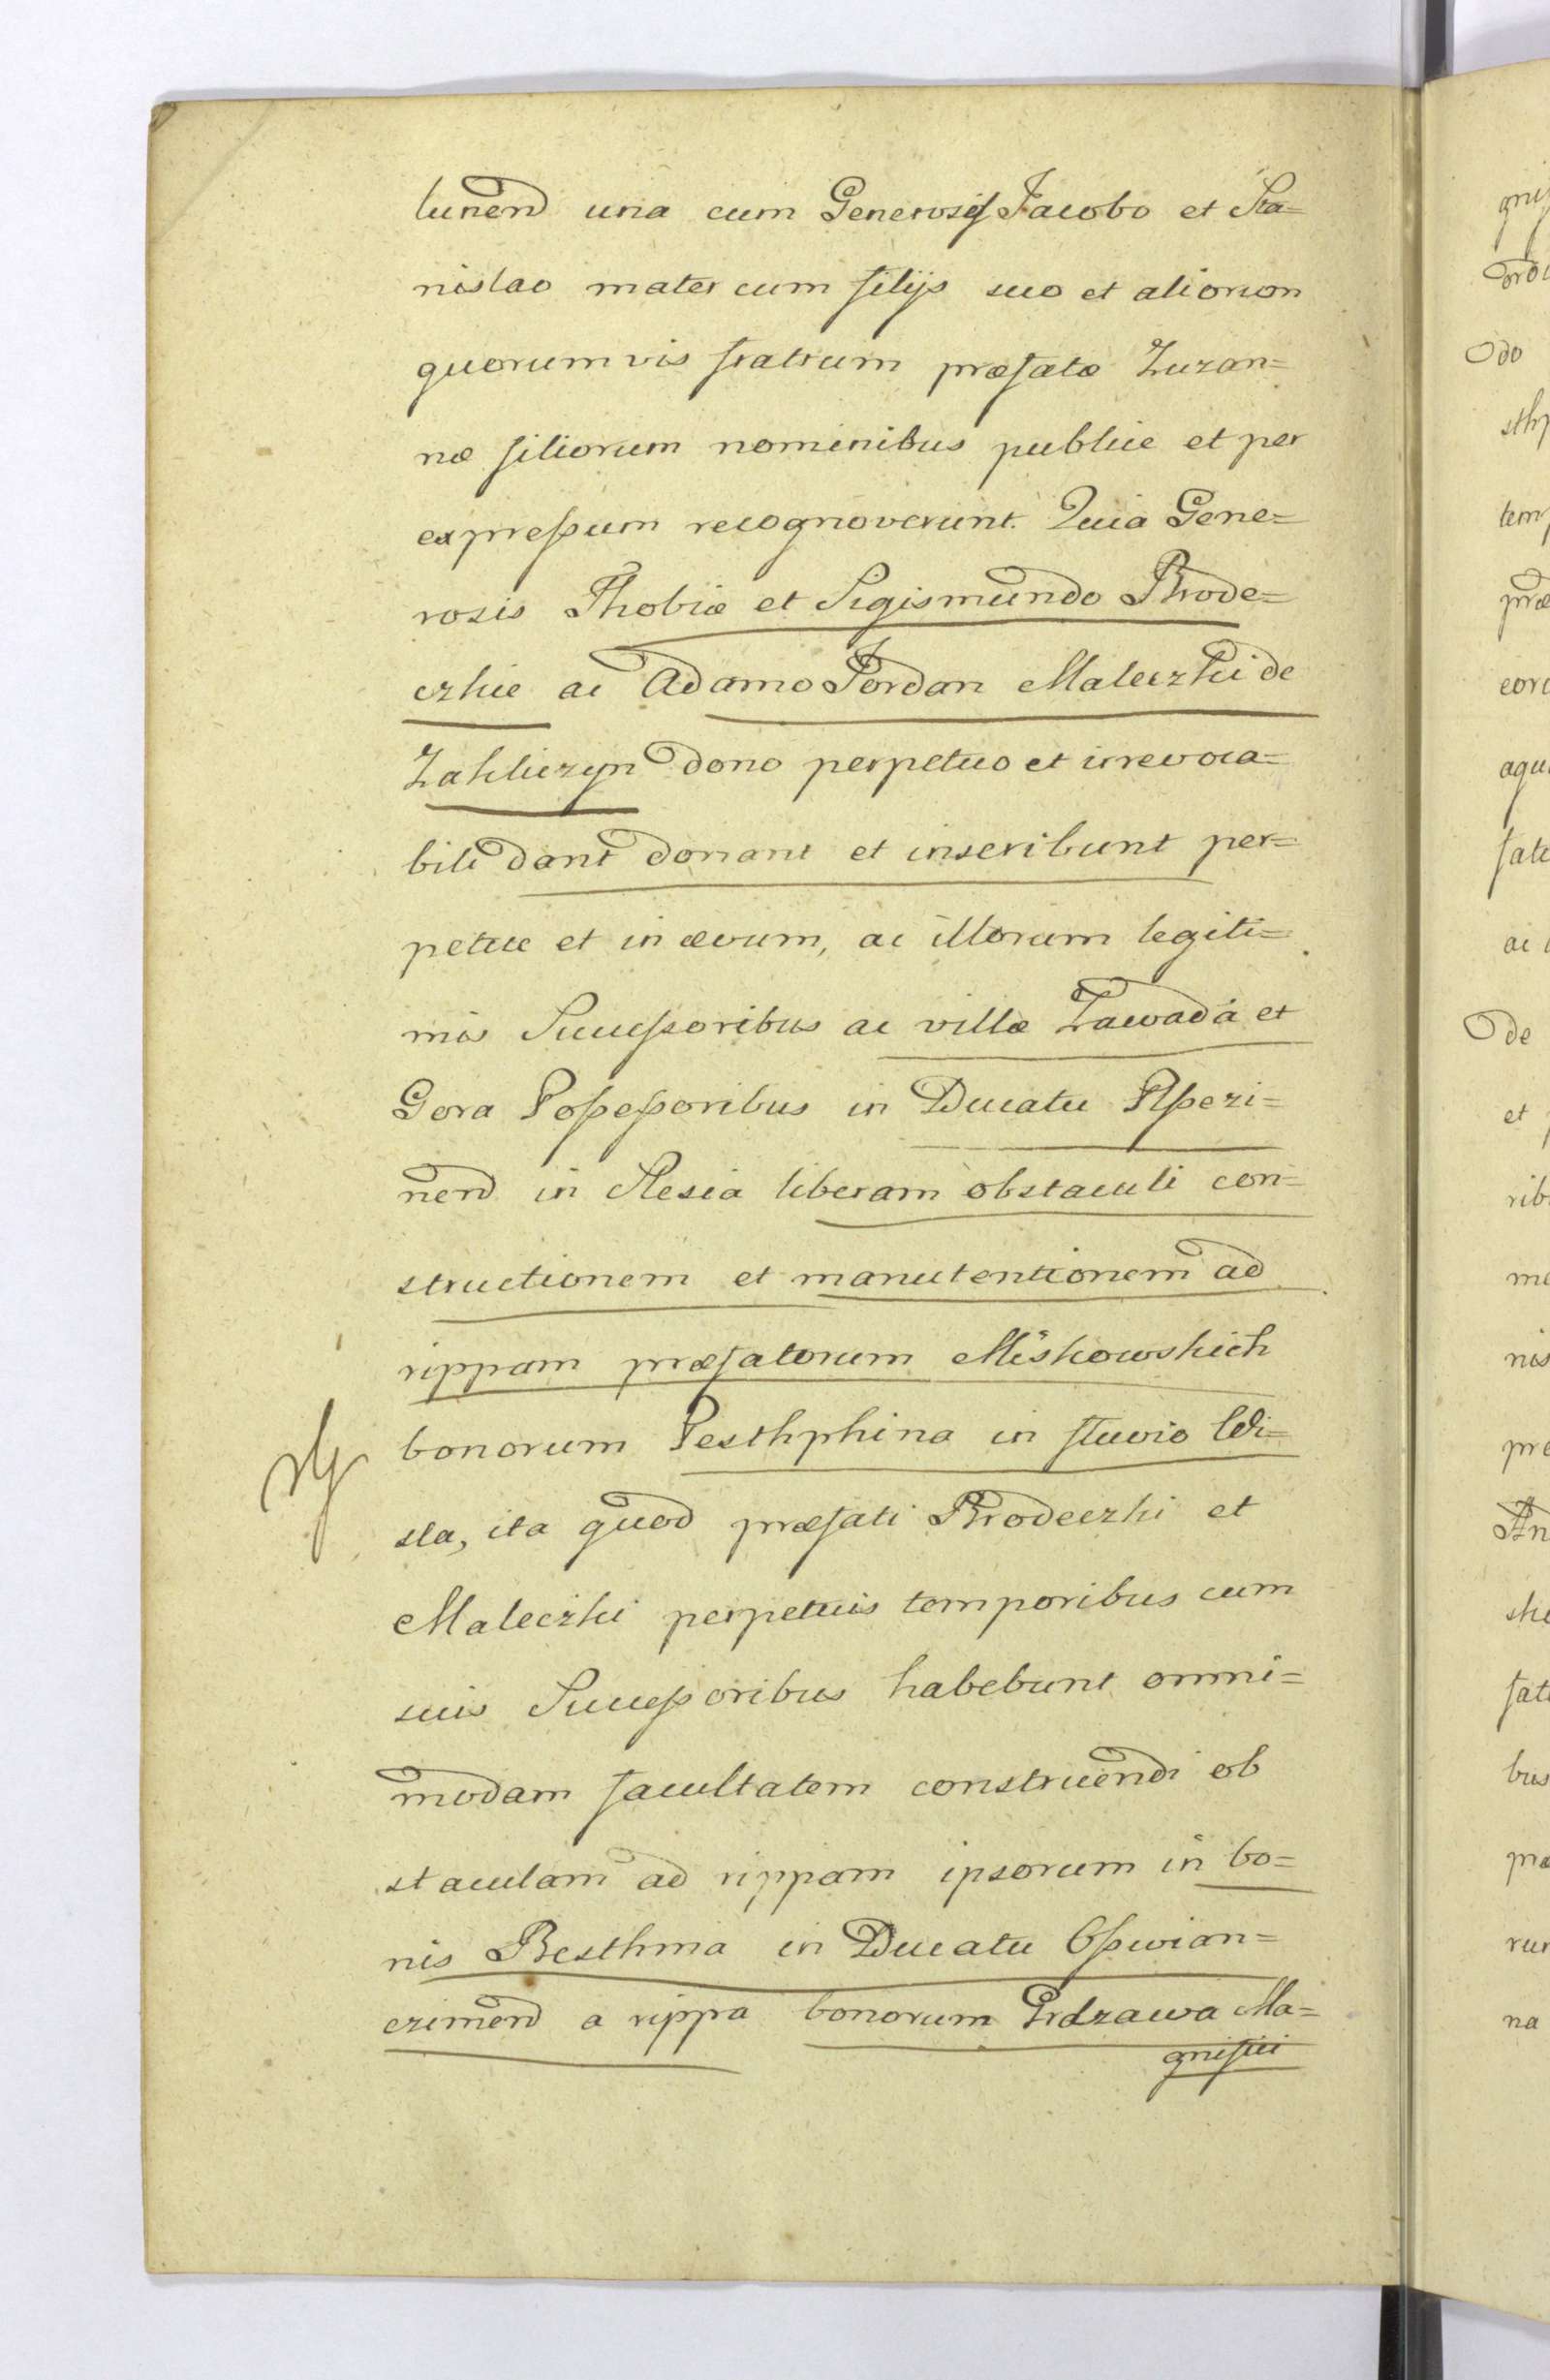 lunend una cum Generosis Jacobo et Sta=
nislao mater cum filijs suo et aliorum
quorumvis fratrum præfatæ Zuzan=
næ filiorum nominibus publice et per
expressum recognoverunt. Quia Gene=
rosis Thobiæ et Sigismundo Brode=
czkie ac Adamo Jordan Maleczki de
Zakliczyn dono perpetuo et irrevoca=
bili dant donant et inscribunt per=
petue et in ævum, ac illorum legiti=
mis Successoribus ac villæ Zawada et
Gora Possessoribus in Ducatu Plssezi=
nend in Slesia liberam obstaculi con=
structionem et manutentionem ad
rippam præfatorum Miskowskich
bonorum Pesthphina in fluvio Wi=
sla, ita quod præfati Brodeczki et
Maleczki perpetuis temporibus cum
suis Successoribus habebunt omni=
modam facultatem construendi ob
staculam ad rippam ipsorum in bo=
nis Besthina in Ducatu Osswian=
czimend a rippa bonorum Grdzawa Ma=
gnifici
gni
do
sthp
tem
præ
eor
aqu
fate
ac
de
et
rib
me
nis
pre
An
ske
fati
bus
præ
rur
na